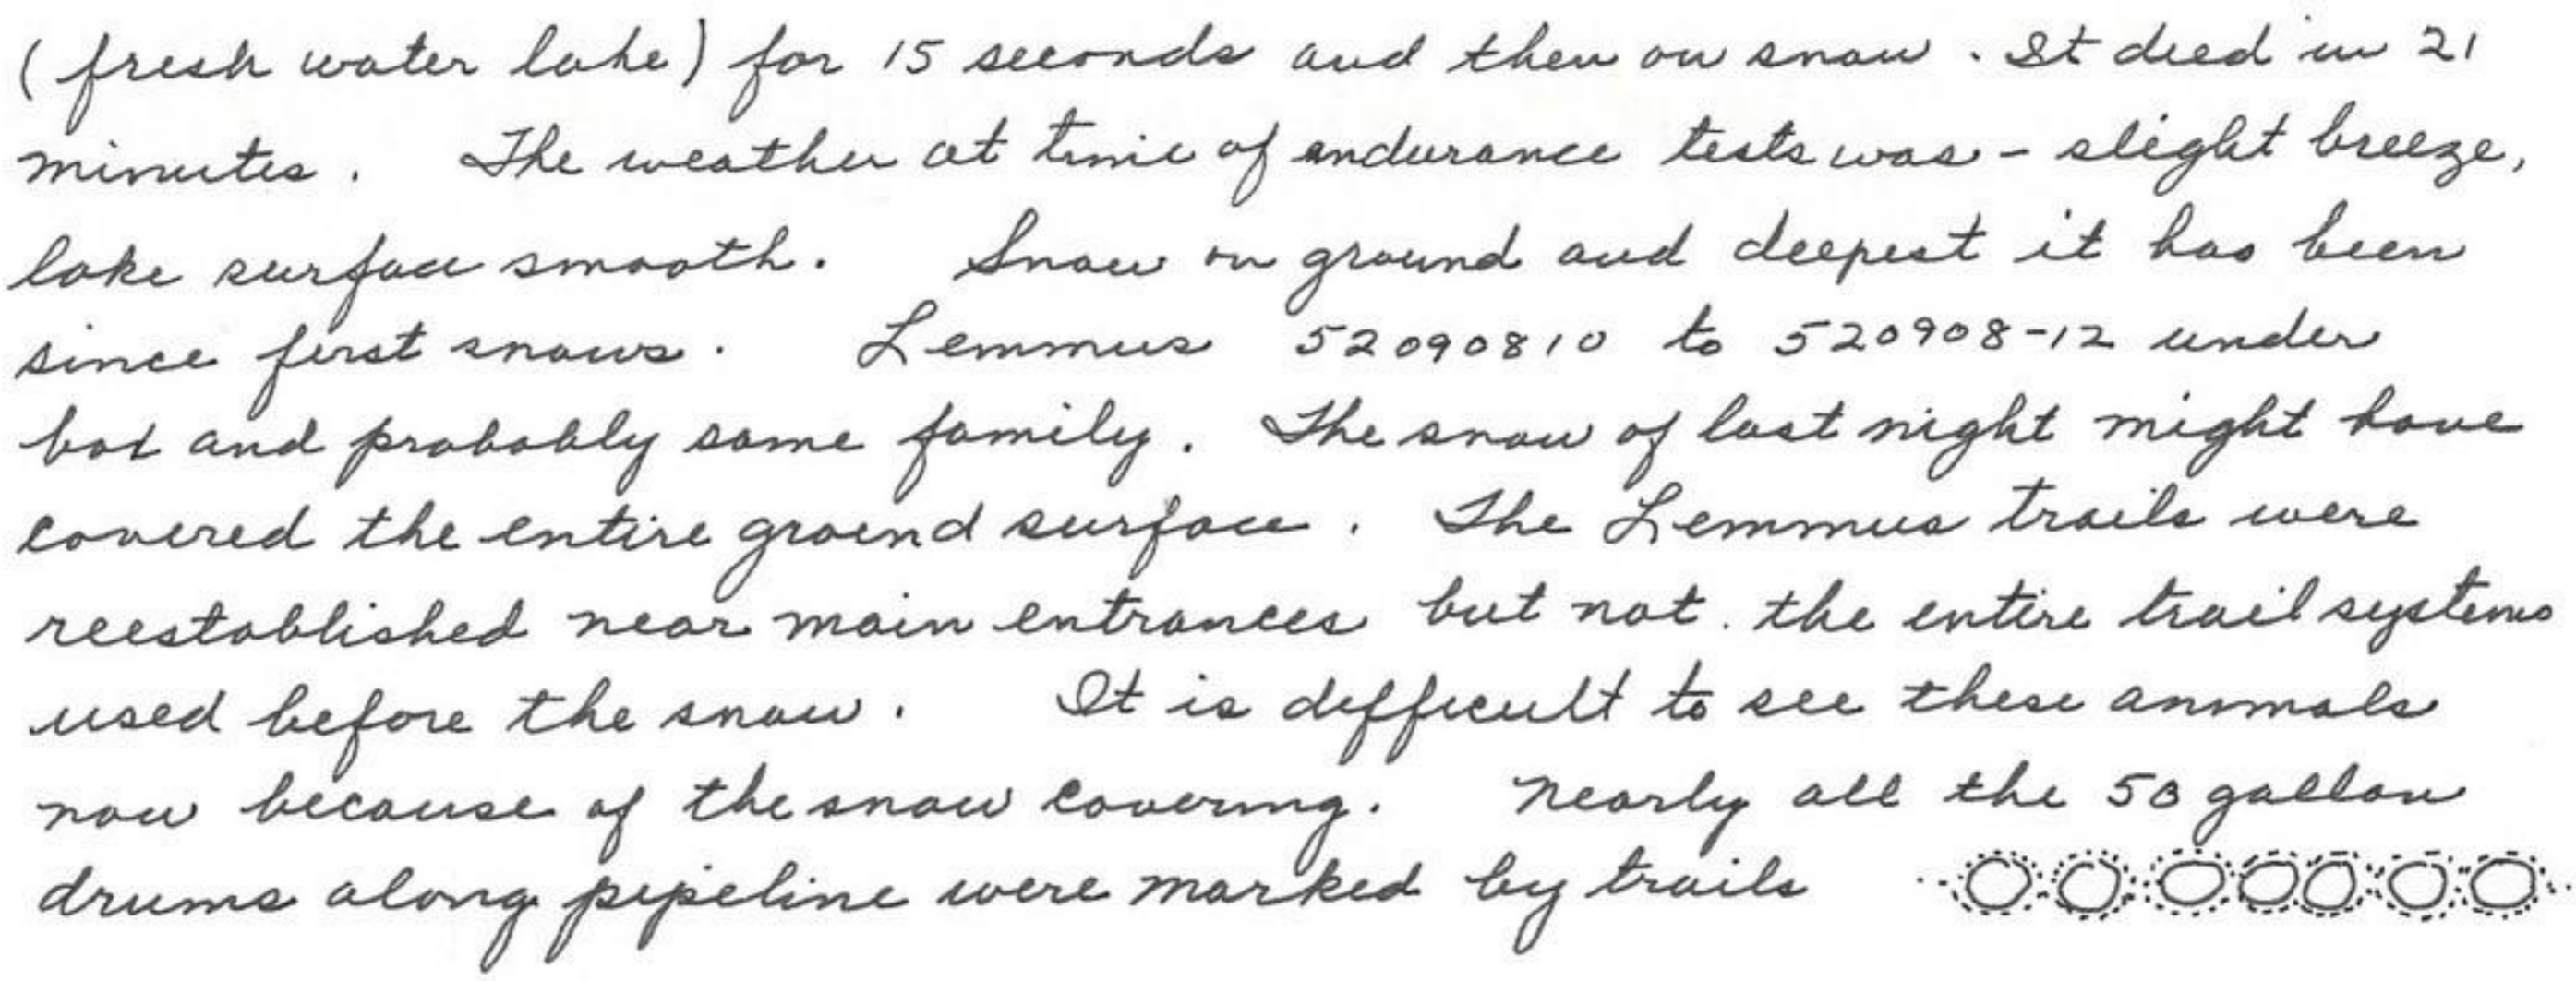 (fresh water lake) for 15 seconds and then on snow. It died in 21
minutes. The weather at time of endurance tests was - slight breeze,
lake surface smooth. Snow on ground and deepest it has been
since first snows. Lemmus 52090810 to 520908-12 under
box and probably same family. The snow of last night might have
covered the entire ground surface. The Lemmus trails were
reestablished near main entrances but not the entire trail systems
used before the snow. It is difficult to see these animals
now because of the snow covering. Nearly all the 50 gallon
drums along pipeline were marked by trails